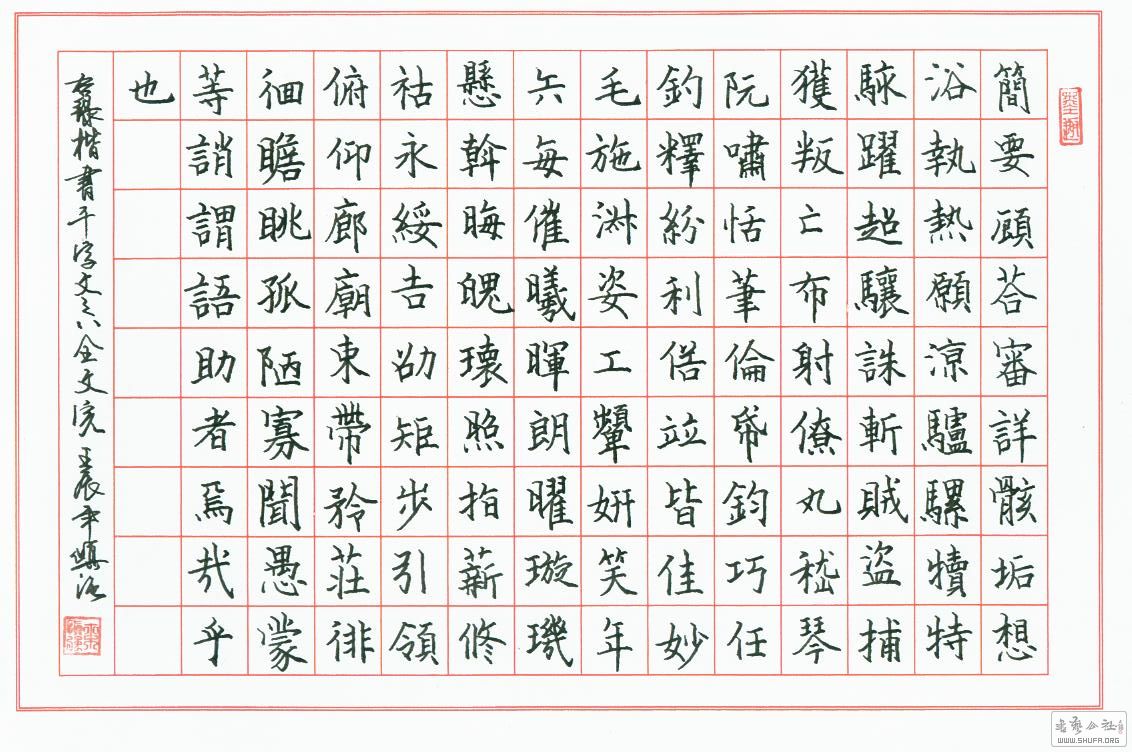 簡要顧荅審詳骸垢想
浴執熱願涼驢騾犢特
駭躍超驤誅斬賊盜捕
獲叛亡布射僚丸嵇琴
阮嘯恬筆倫帋鈞巧任
釣釋紛利俗竝皆佳妙
毛施淑姿工顰妍笑年
矢每催曦暉朗曜璇璣
懸斡晦魄環照指薪修
祜永綏吉劭矩步引領
俯仰廊廟束帶矜莊徘
徊瞻眺孤陋寡聞愚蒙
等誚謂語助者焉哉乎
也
楷書千字文之八全文完 壬辰年
书艺公社
WWW.SHUFA.ORG